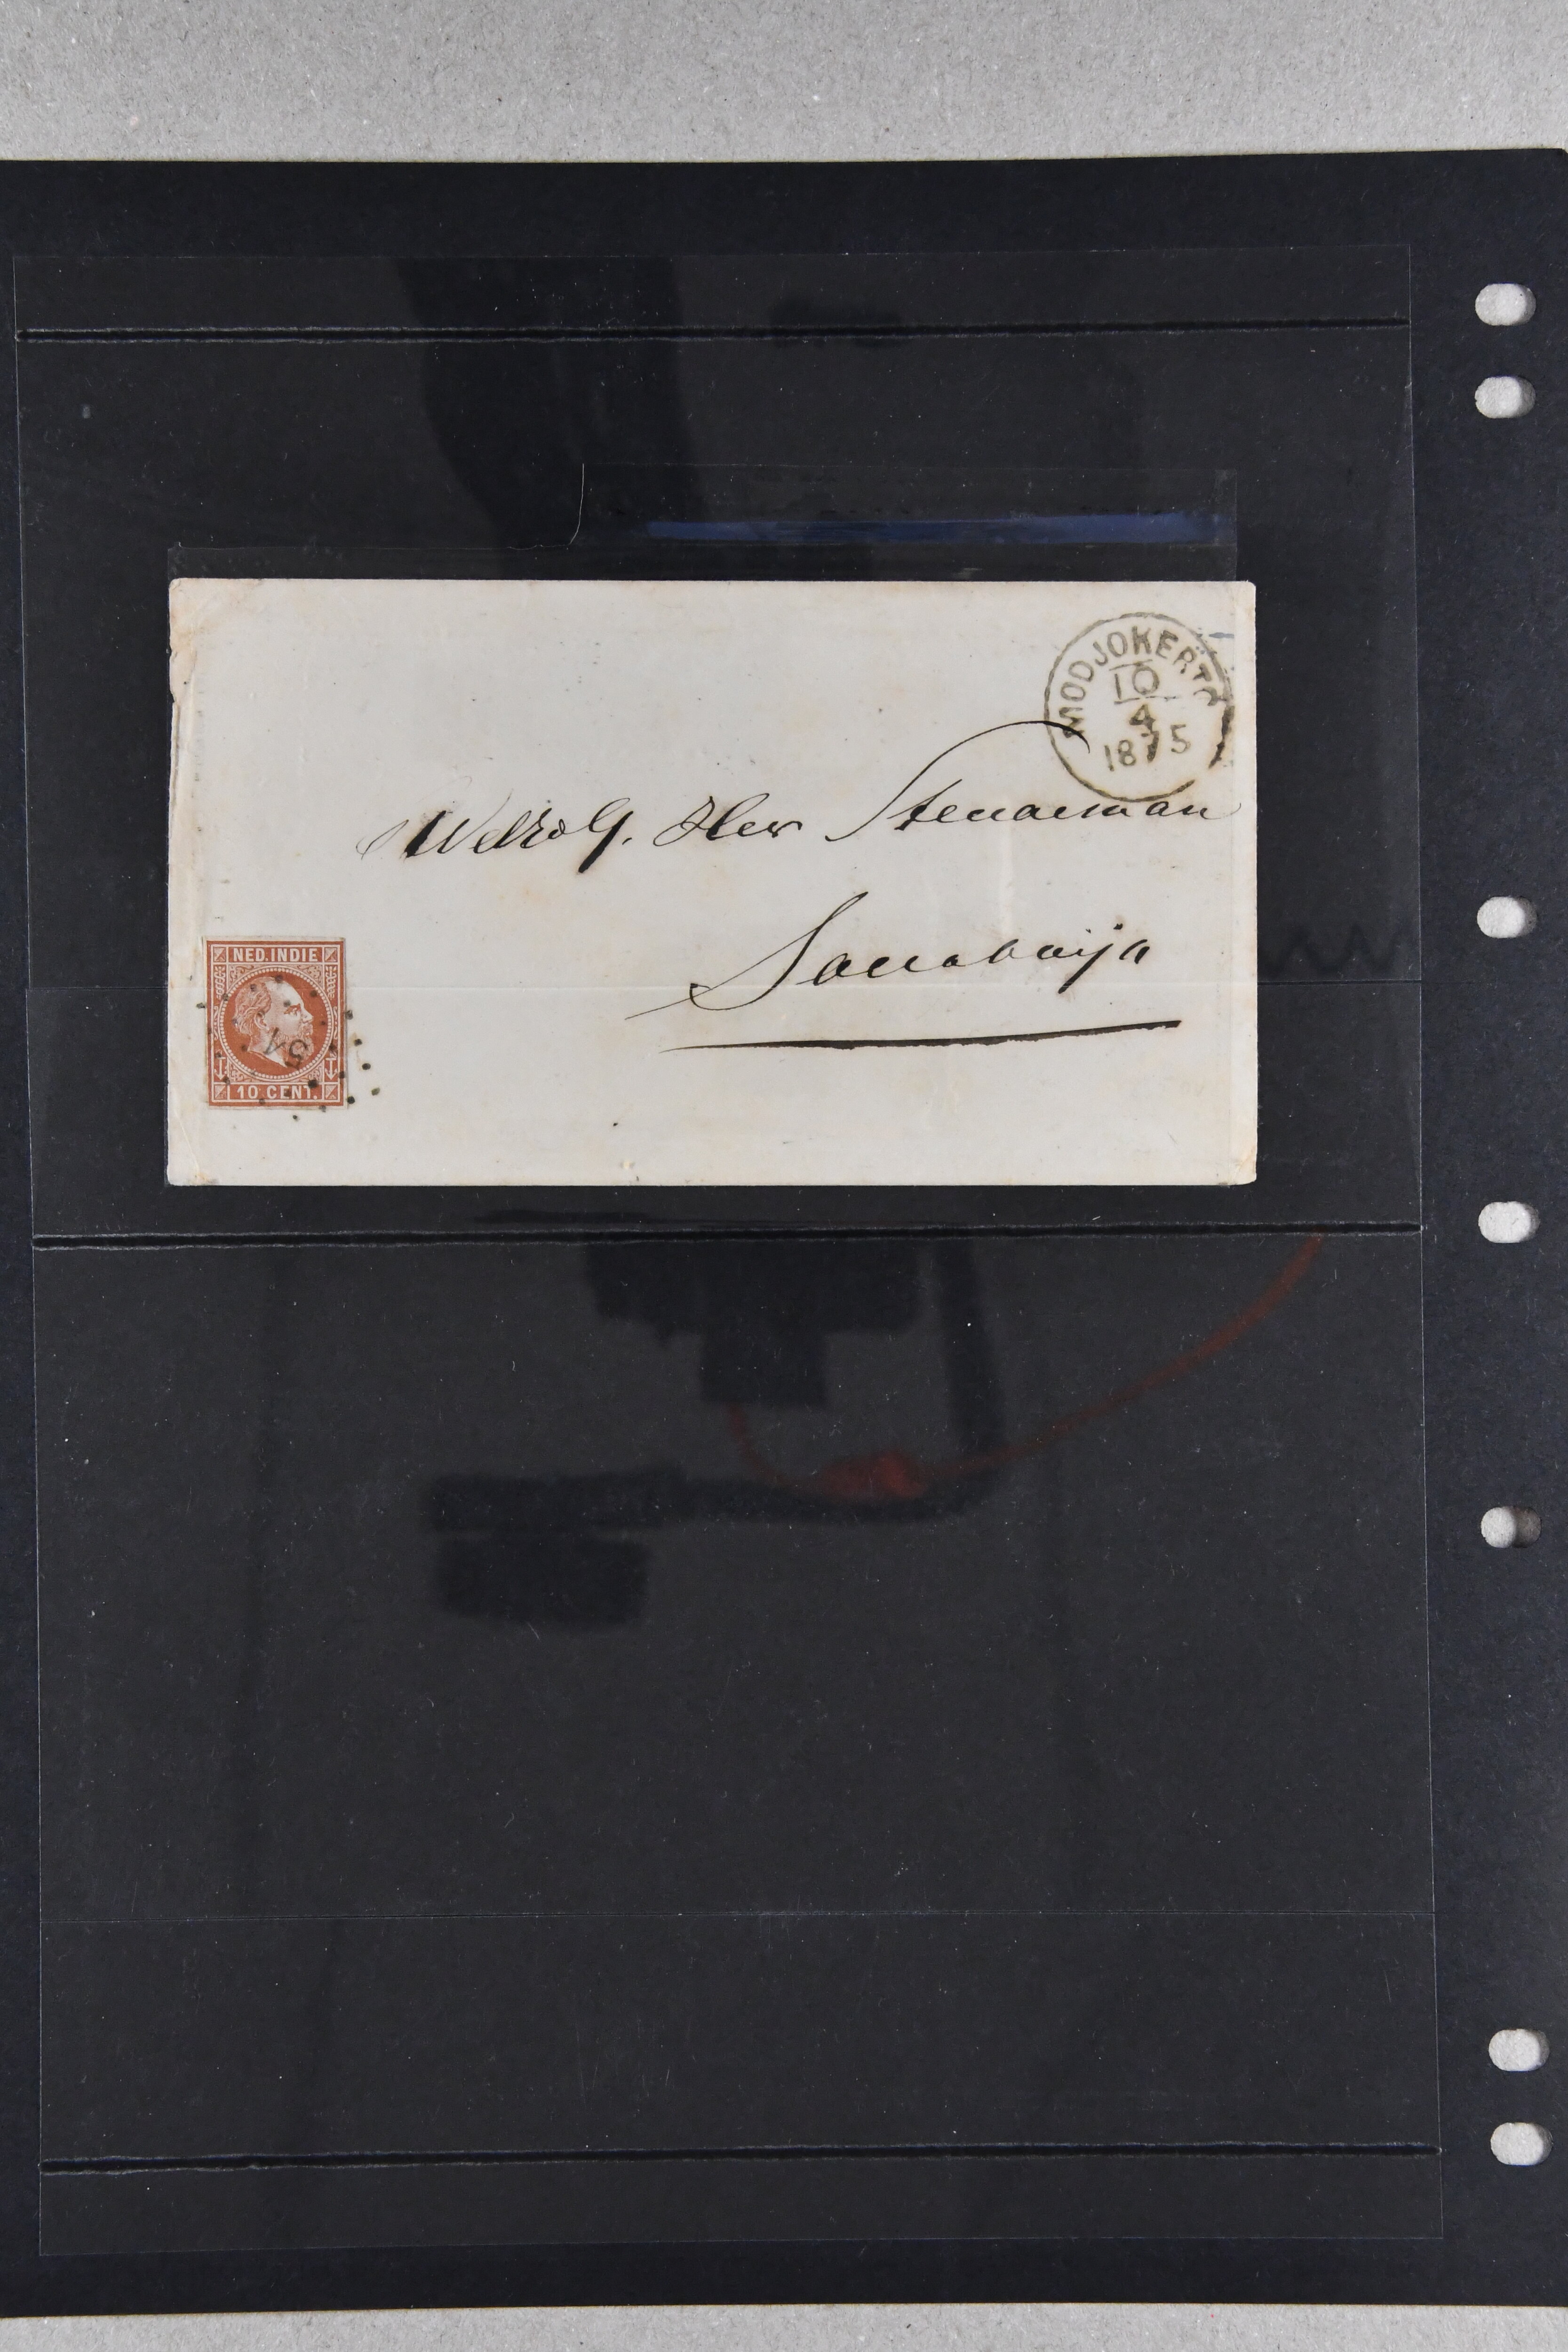 MODJOKERTO
10
4
1875
WelEdG. Heer
Soerabaija
NED. INDIE
10 CENT.